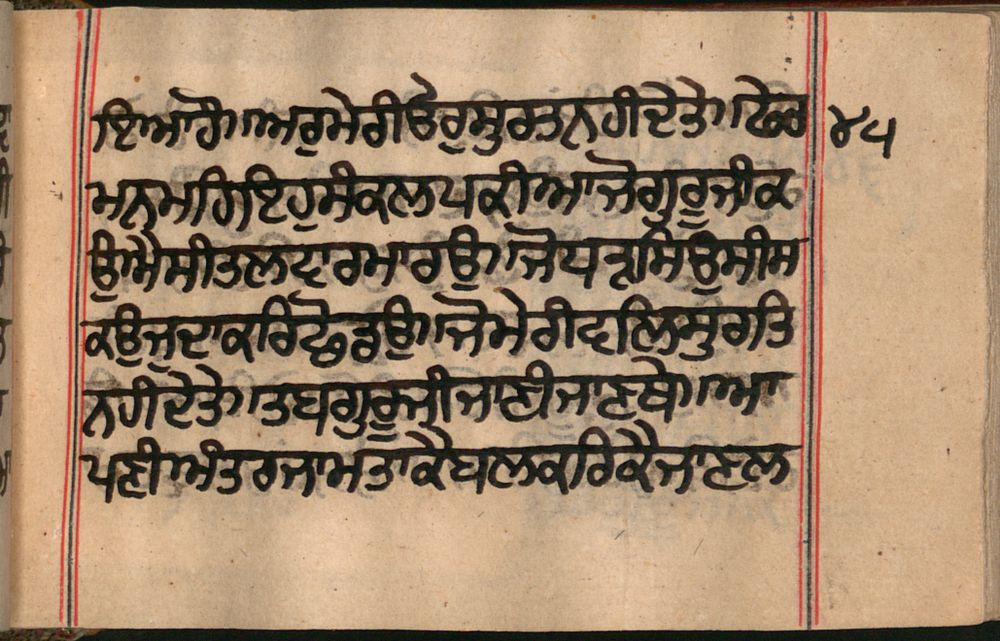 ਇਆ ਹੈ। ਅਰੁ ਮੇਰੀ ਓਰੁ ਸੁਰਤ ਨਹੀ ਦੇਤੇ। ਫੇਰ ੪੫
ਮਨੁ ਮਹਿ ਇਹੁ ਸੰਕਲਪ ਕੀਆ ਜੋ ਗੁਰੂ ਜੀ ਕ
ਉ ਐਸੀ ਤਲਵਾਰ ਮਾਰਉ। ਜੋ ਧਰ੍ਹਮਿ ਉ ਸੀਸ
ਕਉ ਜੁਦਾ ਕਰਿ ਛੋਡਉ। ਜੋ ਮੇਰੀ ਵਲਿ ਸੁਰਤਿ
ਨਹੀ ਦੇਤੇ। ਤਬ ਗੁਰੂ ਜੀ ਜਾਣੀ ਜਾਣ ਥੇ। ਆ
ਪਣੀ ਅੰਤਰਜਾਮਤਾ ਕੈ ਬਲ ਕਰਿ ਕੈ ਜਾਣ ਲ